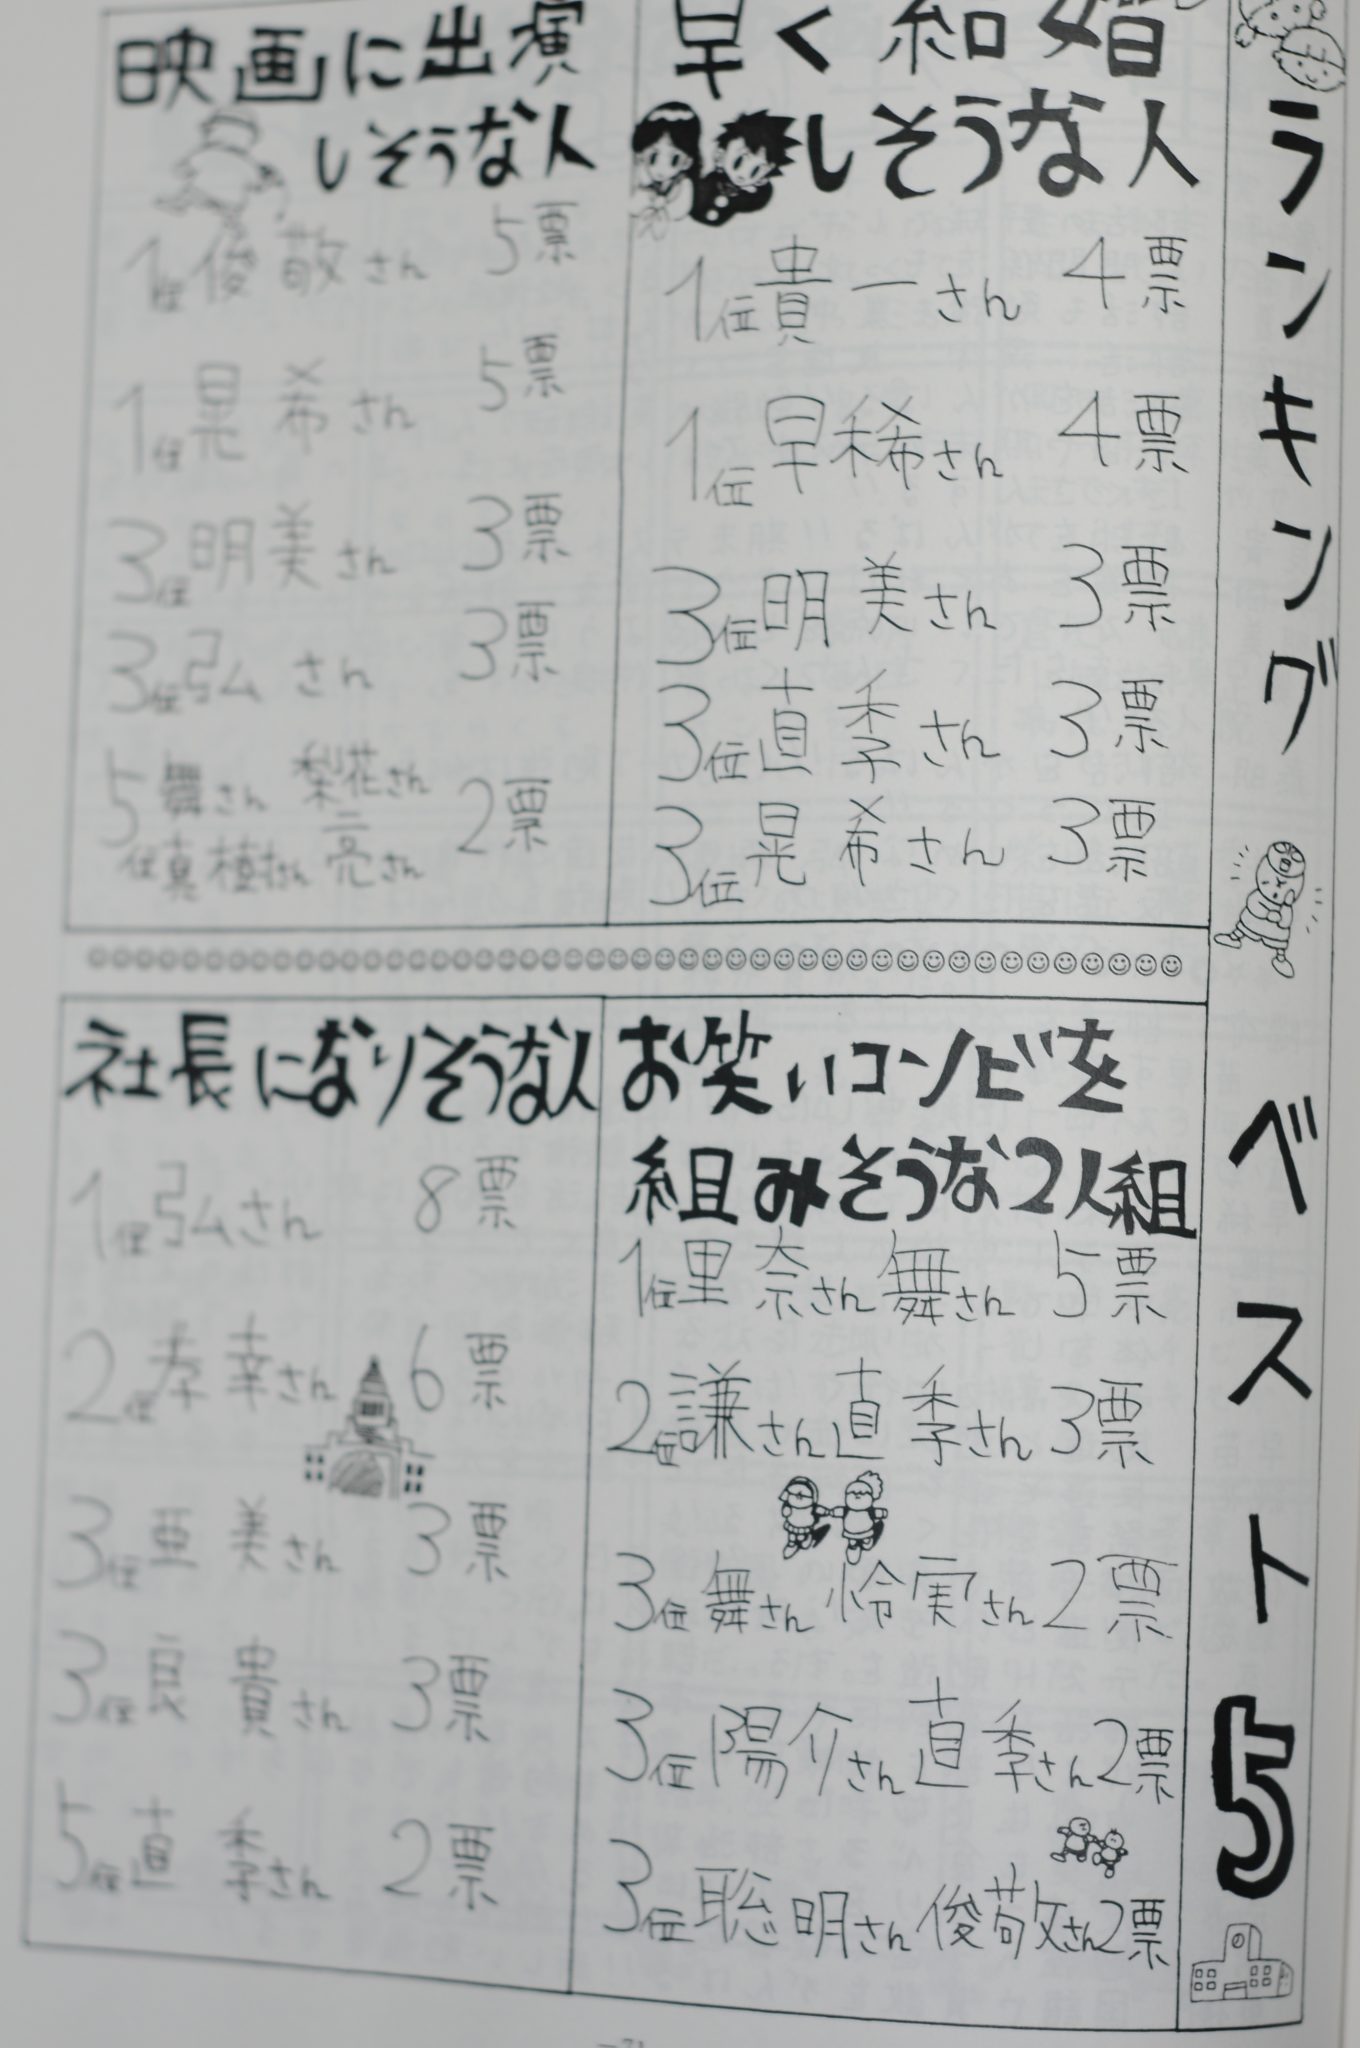 ランキング ベスト5
早く結婚
しそうな人
1位 貴一さん 4票
1位 早稀さん 4票
3位 明美さん 3票
3位 直季さん 3票
3位 晃希さん 3票
映画に出演
しそうな人
1位 俊敬さん 5票
1位 晃希さん 5票
3位 明美さん 3票
3位 弘さん 3票
5位 舞さん 梨花さん 2票
真植さん 亮さん
お笑いコンビを
組みそうな2人組
1位 里奈さん 舞さん 5票
2位 謙さん 直季さん 3票
3位 舞さん 怜実さん 2票
3位 陽介さん 直季さん 2票
3位 聡明さん 俊敬さん 2票
社長になりそうな人
1位 弘さん 8票
2位 孝幸さん 6票
3位 亜美さん 3票
3位 良貴さん 3票
5位 直季さん 2票